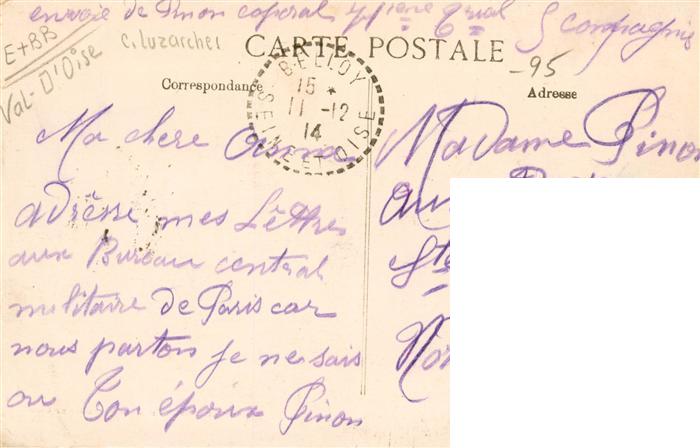 envoie de Pinon caporal 41ième trial 5 compagnie
E+BB
Val-D'Oise
C. Luzarches
CARTE POSTALE
-95
Correspondance
Adresse
BELLOY
15 *
11 -12
14
SEINE ET OISE
Ma chère
adrêsse mes Lêttres
aux Bureau central
militaire de Paris car
nous parton je ne sais
ou Ton époux Pinon
Madame Pinon
Ste